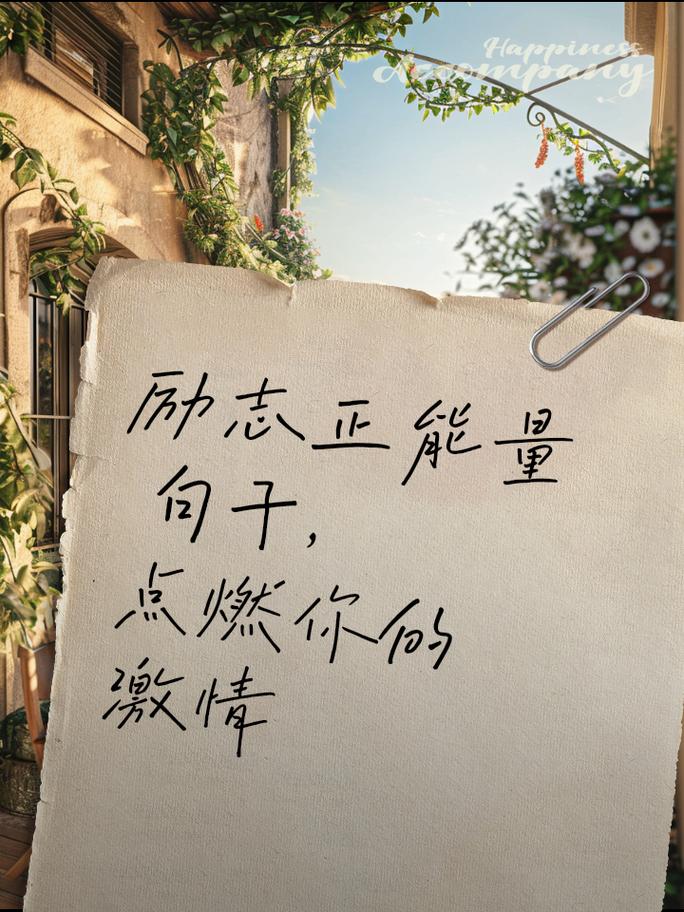 Happiness
Accompany
励志正能量
句子，
点燃你的
激情